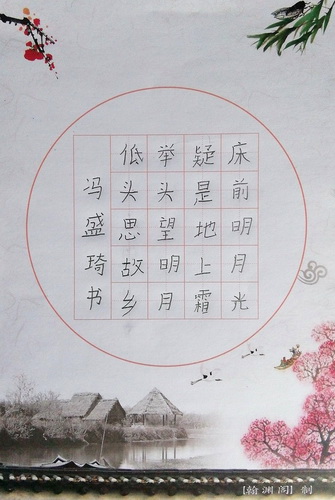 床前明月光
疑是地上霜
举头望明月
低头思故乡
冯盛琦书
【翰渊阁】制